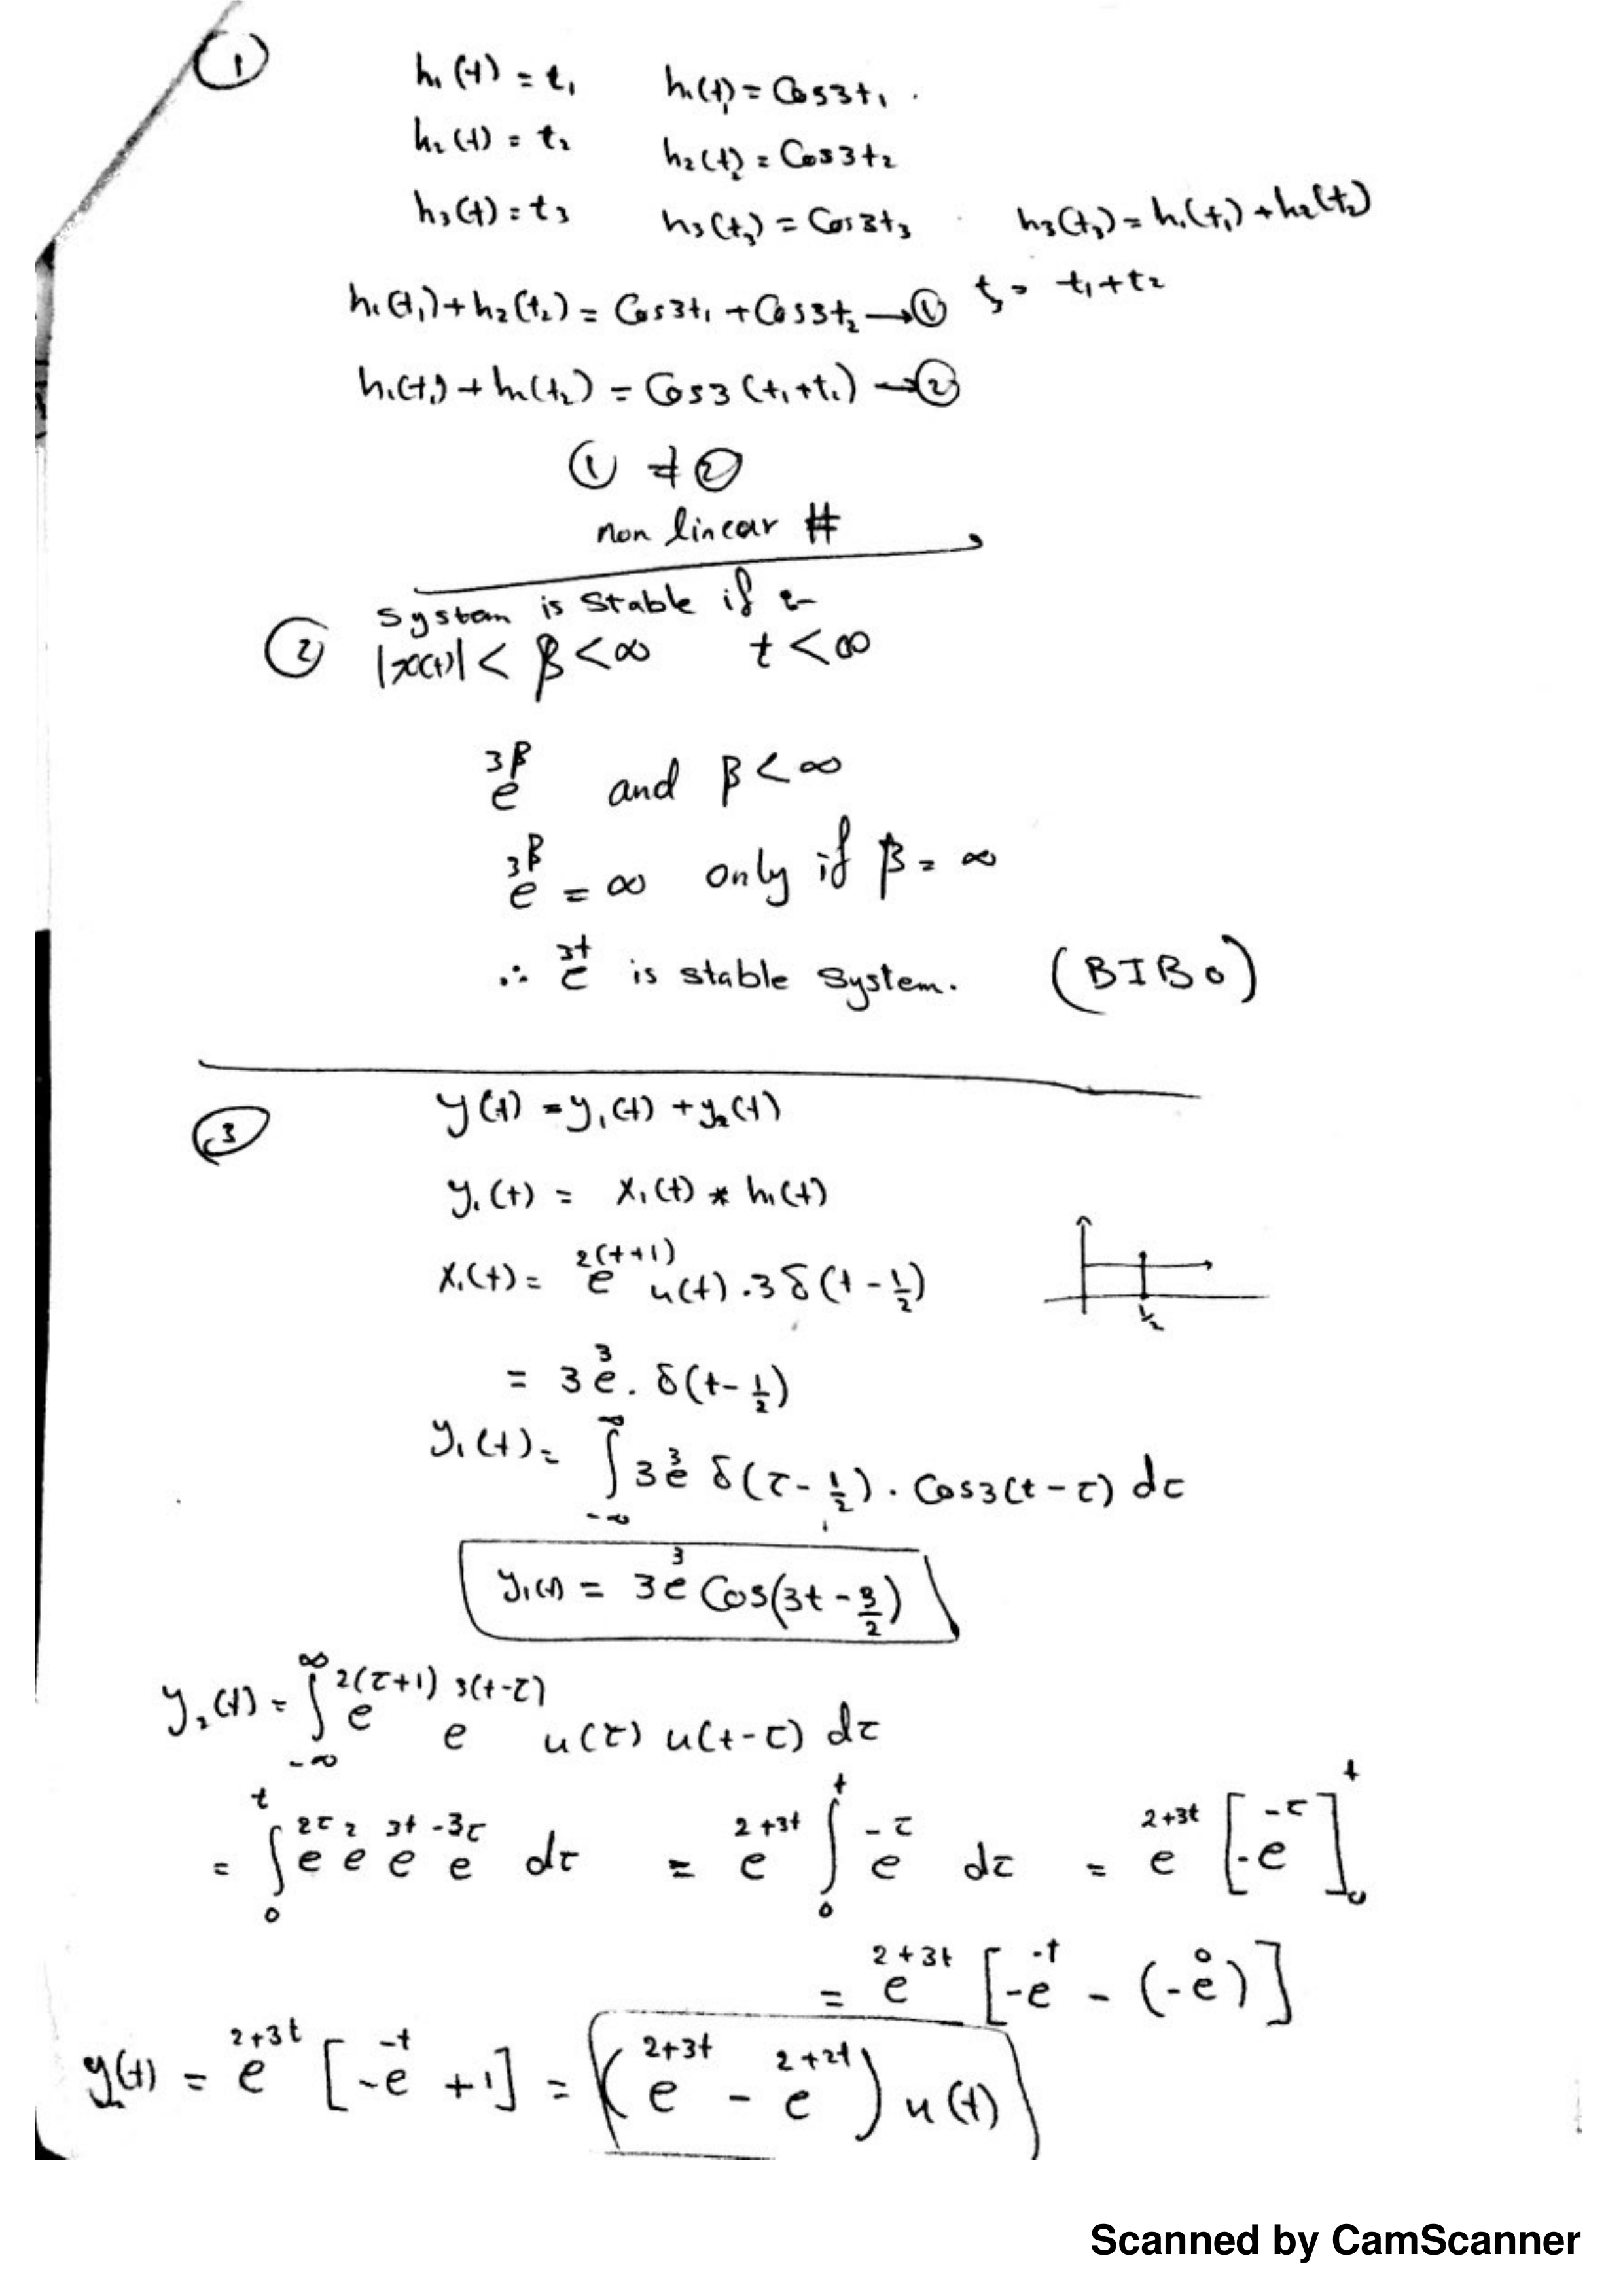 ①
h₁(t) = t₁ h₁(t₁) = Cos3t₁ .
h₂(t) = t₂ h₂(t₂) = Cos3t₂
h₃(t) = t₃ h₃(t₃) = Cos3t₃ h₃(t₃) = h₁(t₁) + h₂(t₂)
h₁(t₁) + h₂(t₂) = Cos3t₁ + Cos3t₂ → ① t₃ = t₁+t₂
h₁(t₁) + h₁(t₂) = Cos3(t₁+t₁) → ②
① ≠ ②
non linear #
System is Stable if
② |x(t)| < β < ∞ t < ∞
e^{3β} and β < ∞
e^{3β} = ∞ only if β = ∞
∴ e^{3t} is stable system. (BIBO)
③ y(t) = y₁(t) + y₂(t)
y₁(t) = x₁(t) * h₁(t)
x₁(t) = e^{2(t+1)} u(t) . 3 δ(t - 1/2)
1/2
= 3e³ . δ(t - 1/2)
y₁(t) = ∫_{-∞}^{∞} 3e³ δ(τ - 1/2) . Cos3(t - τ) dτ
y₁(t) = 3e³ Cos(3t - 3/2)
y₂(t) = ∫_{-∞}^{∞} e^{2(τ+1)} e^{3(t-τ)} u(τ) u(t-τ) dτ
= ∫_{0}^{t} e^{2τ} e^{2} e^{3t} e^{-3τ} dτ = e^{2+3t} ∫_{0}^{t} e^{-τ} dτ = e^{2+3t} [-e^{-τ}]_{0}^{t}
= e^{2+3t} [-e^{-t} - (-e^{0})]
y₂(t) = e^{2+3t} [-e^{-t} + 1] = (e^{2+3t} - e^{2+2t}) u(t)
Scanned by CamScanner